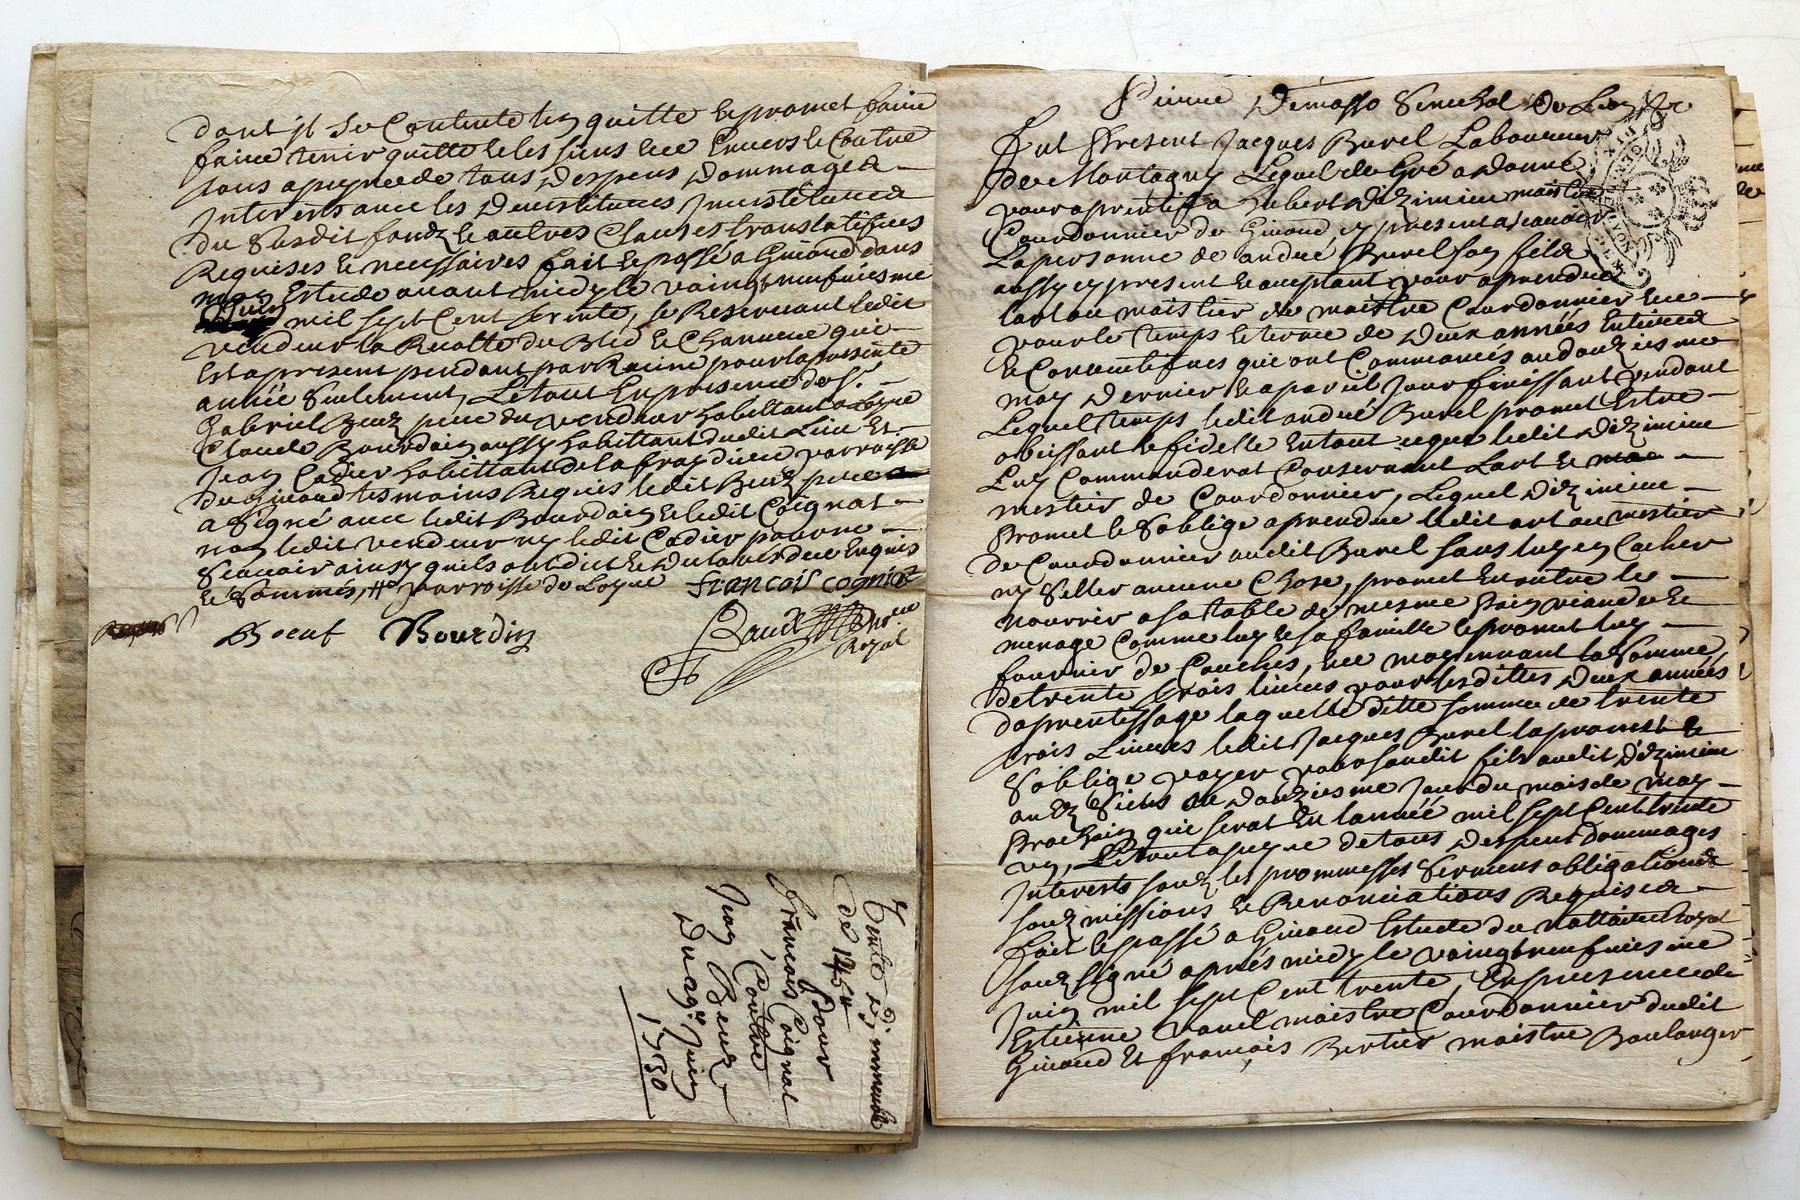 dont jl se Contente len quitte le promet faire
faire tenir quitte le les siens ece Envers le Contre
sous a peyne de tous despens dommagea
Interests avec les devestitures Jnvestiturea
du susdit fondz le aultres Clauses translatifves
Requises le necessaires fait le passé a Givord dans
mon Estude avant midy le vaingtneufviesme
Juin mil sept Cent trente, se Reservant ledit
vendeur la Recolte du Bled le Chanvene qui
Est a present pendant par Racine pour la presente
année seulement, Le tout En presence de sr.
Gabriel Beuz pere du vendeur habittant a Loyre
Claude Bourdain aussy habittant dudit Lieu Et
Jean Cadier habittant de la fraydiere parroisse
du Givord tesmoins Requis ledit Beuz pere
a signé avec ledit Bourdain le ledit Coignat
non ledit vendeur ny ledit Cadier pour ne
scavoir ainsy quils ont dict le du lavoir de ce Enquis
le sommés, # parroisse de Loyre francois cogniat
Boeuf Bourdin
Royal
Vente d'immeuble
de 145#
pour
francois Coignat
Contre
Jean Beuz
Du 29e. Juin
1730
Pierre Demasso Senechal De Lion
fut Present Jacques Burel Laboureur
de Montagny Lequel de Gré a donné
pour aprentif a hubert Dizimieu maistre
Courdonnier de Givord cy present a scavoir
La personne de andré Burel son filz
aussy cy present le aceptant pour aprendre
lart ou maistier de maistre Courdonnier ece
pour le temps le terme de deux années Entierea
le Consecutifves qui ont Commancés au douziesme
may dernier le a pareil Jour finissant pendant
Lequel temps ledit andré Burel promet Estre
obeissant le fidelle En tout ce que ledit Dizimieu
Luy Commanderat Conservant Lart le
mestier de Courdonnier, Lequel Dizimieu
Promet le soblige aprendre ledit art ou mestier
de Courdonnier audit Burel sans luy en Cacher
ny Seller aucune Chose, promet En outre le
nourrir a sa table de mesme pain viande le
menage Comme luy le sa famille le promet luy
fournir de Couches, ece moyennant la somme
de trente trois livres pour lesdittes deux années
daprentissage laquelle ditte somme de trente
trois Livres ledit Jacques Burel la promet le
soblige payer pour sondit filz audit Dizimieu
au dz siens au douziesme Jour du mois de may
Prochain qui serat En lannée mil sept Cent trente
un, Le tout a peyne de tous despens dommages
Interests soubz les prommesses Sermens obligations
soubzmissions le Renonciations Requisea
fait le passé a Givord Estude du nottaire Royal
soubzsigné aprés midy le vaingtneufviesme
Juin mil sept Cent trente, En presence de
Estienne vanel maistre Courdonnier dudit
Givord Et francois Bertier maistre Boulanger